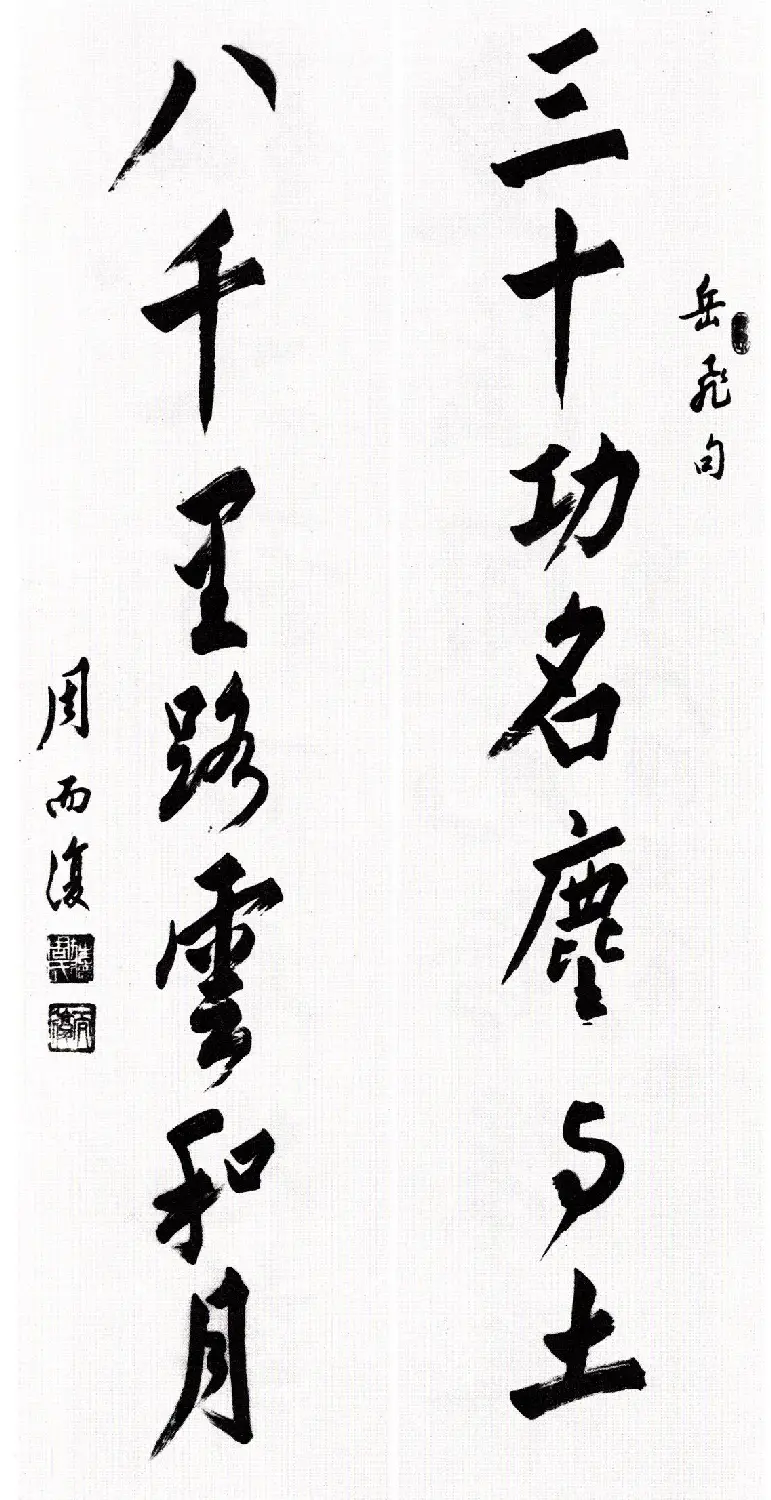 岳飛句
三十功名塵与土
八千里路雲和月
周而復